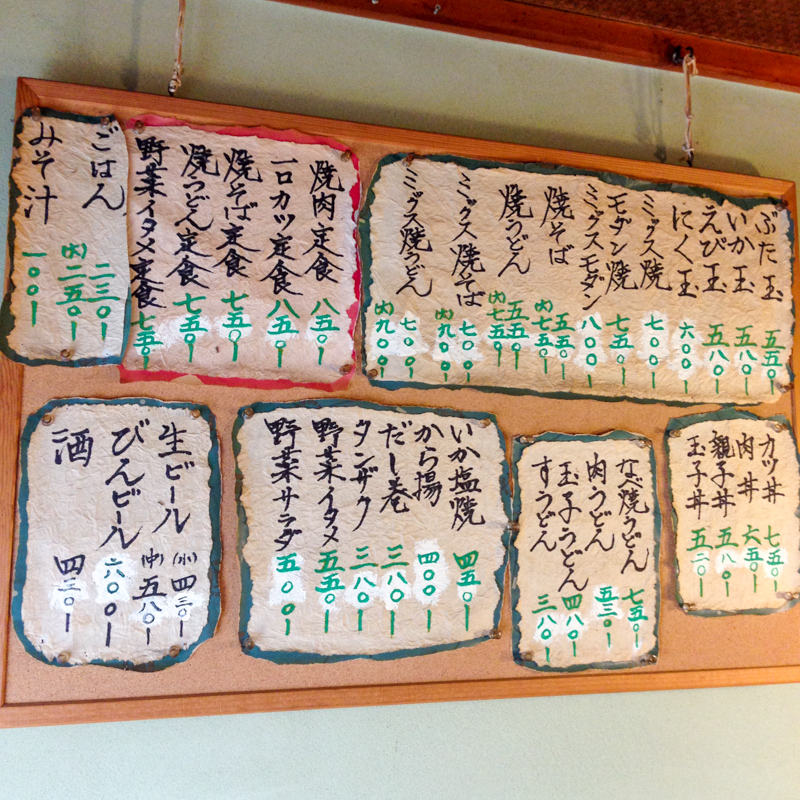 ぶた玉 五五〇ー
いか玉 五八〇ー
えび玉 五八〇ー
にく玉 六〇〇ー
ミックス焼 七〇〇ー
モダン焼 七五〇ー
ミックスモダン 八〇〇ー
焼そば 五五〇ー
(大)七五〇ー
焼うどん 五五〇ー
(大)七五〇ー
ミックス焼そば 七〇〇ー
(大)九〇〇ー
ミックス焼うどん 七〇〇ー
(大)九〇〇ー
焼肉定食 八五〇ー
一口カツ定食 八五〇ー
焼そば定食 七五〇ー
焼うどん定食 七五〇ー
野菜イタメ定食 七五〇ー
ごはん 二三〇ー
(大)二五〇ー
みそ汁 一〇〇ー
カツ丼 七五〇ー
肉丼 六五〇ー
親子丼 五八〇ー
玉子丼 五二〇ー
なべ焼うどん 七五〇ー
肉うどん 五三〇ー
玉子うどん 四八〇ー
すうどん 三八〇ー
いか塩焼 四五〇ー
から揚 四〇〇ー
だし巻 三八〇ー
タンザク 三八〇ー
野菜イタメ 五五〇ー
野菜サラダ 五〇〇ー
生ビール (小)四三〇ー
(中)五八〇ー
びんビール 六〇〇ー
酒 四三〇ー